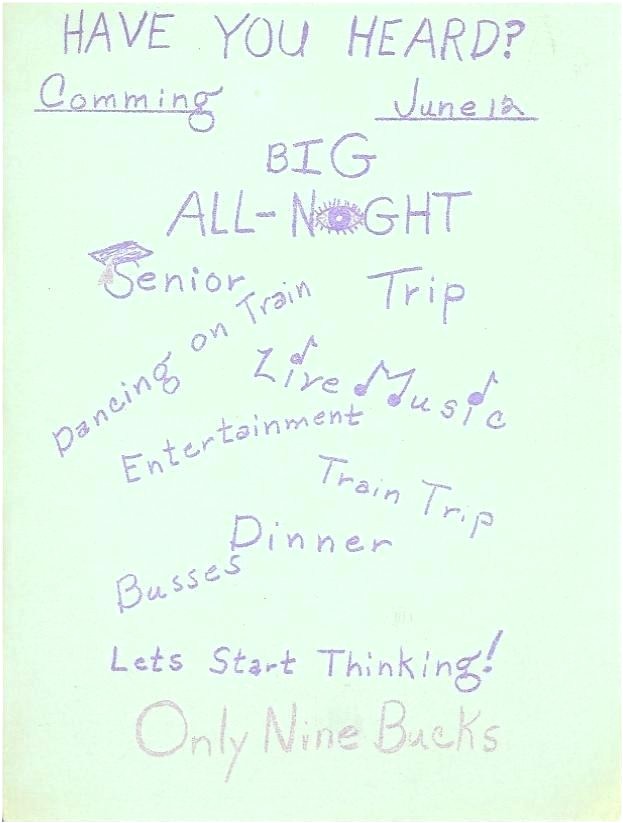 HAVE YOU HEARD?
Comming June 12
BIG
ALL-NIGHT
Senior Trip
Dancing on Train
Live Music
Entertainment
Train Trip
Dinner
Busses
Lets Start Thinking!
Only Nine Bucks